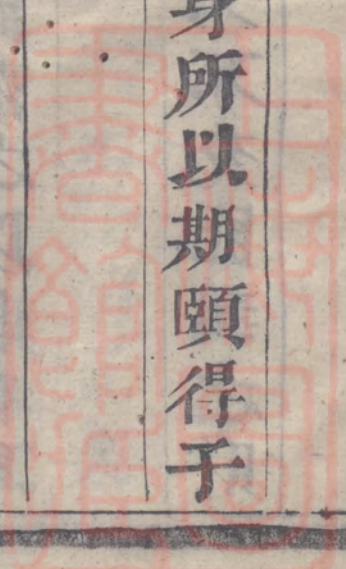 身所以期頤得于